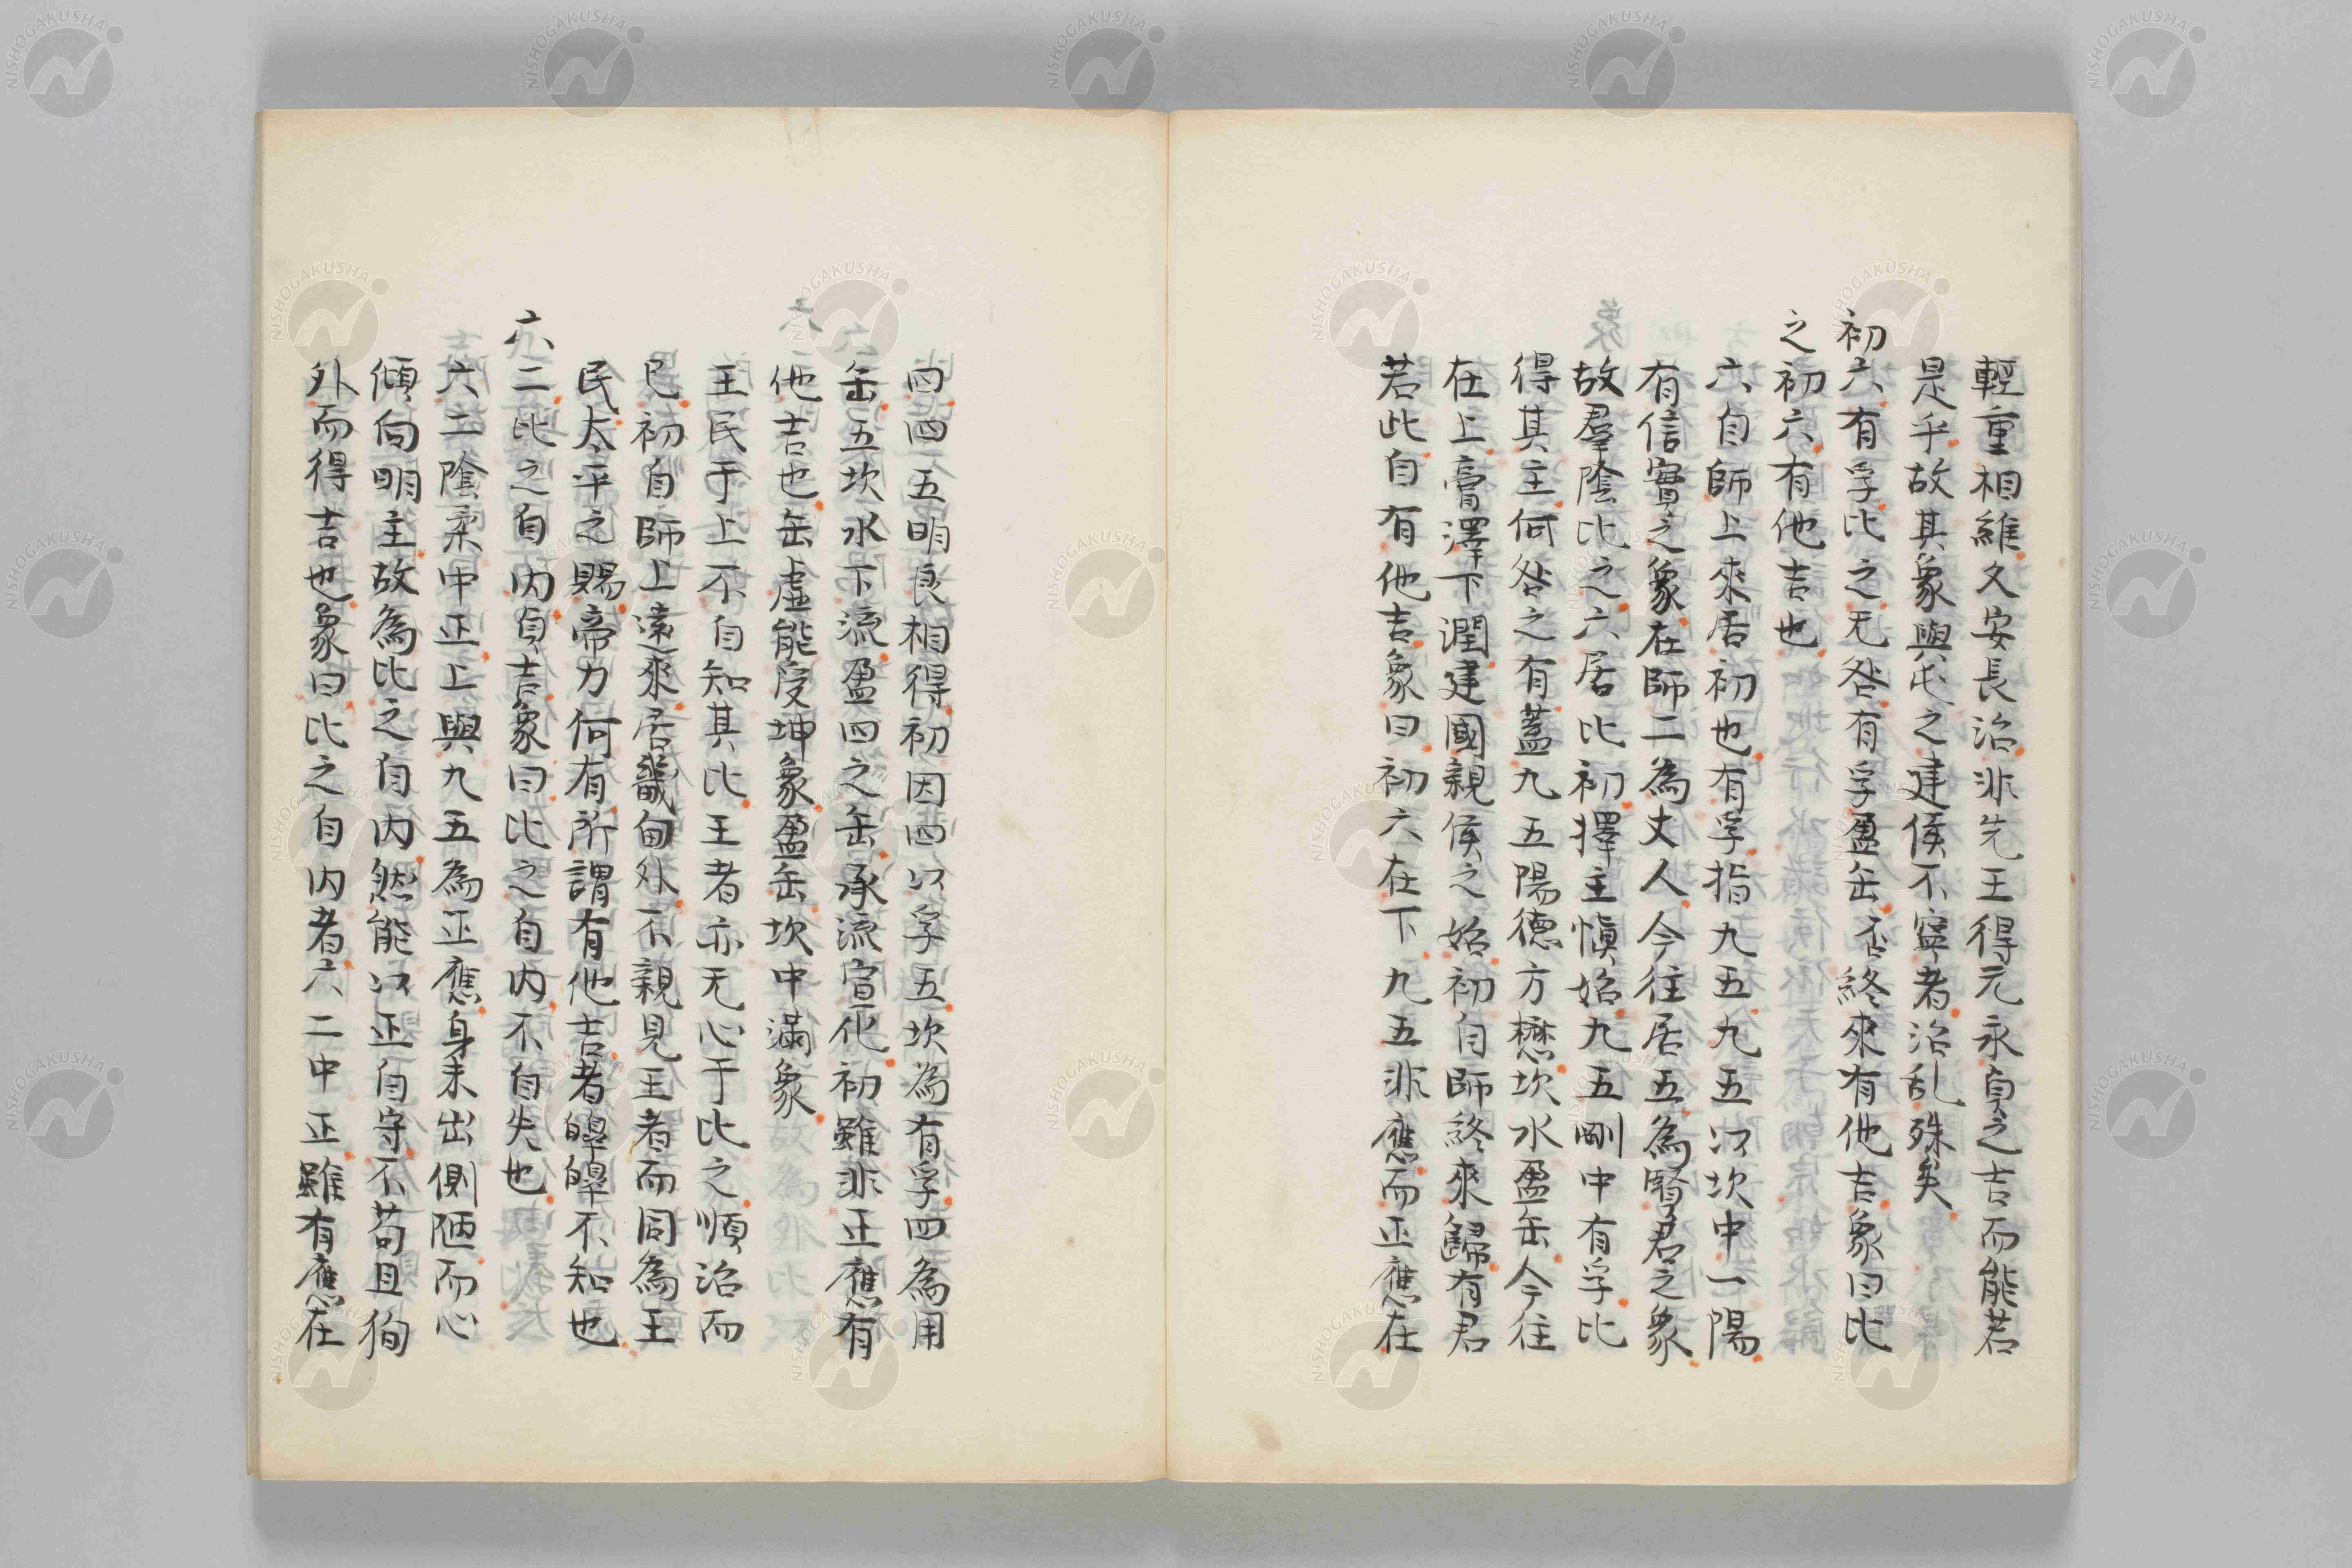 輕重相維久安長治非先王得元永貞之吉而能若
是乎故其象與屯之建侯不寧者治乱殊矣
初六有孚比之无咎有孚盈缶終來有他吉象曰比
之初六有他吉也
六自師上來居初也有孚指九五九五以坎中一陽
有信實之象在師二為丈人今往居五為賢君之象
故羣陰比之六居比初擇主慎始九五剛中有孚比
得其主何咎之有蓋九五陽德方懋坎水盈缶今往
在上膏澤下潤建國親侯之始初自師終來歸有君
若此自有他吉象曰初六在下九五非應而正應在
四四五明良相得初因四以孚五坎為有孚四為用
缶五坎水下流盈四之缶承流宣化初雖非正應有
他吉也缶虛能受坤象盈缶坎中滿象
王民于上不自知其比王者亦无心于比之順治而
已初自師上遠來居畿甸外不親見王者而同為王
民太平之賜帝力何有所謂有他吉者皞皞不知也
六二比之自内貞吉象曰比之自内不自失也
六二陰柔中正上與九五為正應身未出側陋而心
傾向明主故為比之自内然能以正自守不苟且徇
外而得吉也象曰比之自内者六二中正雖有應在
NISHOGAKUSHA